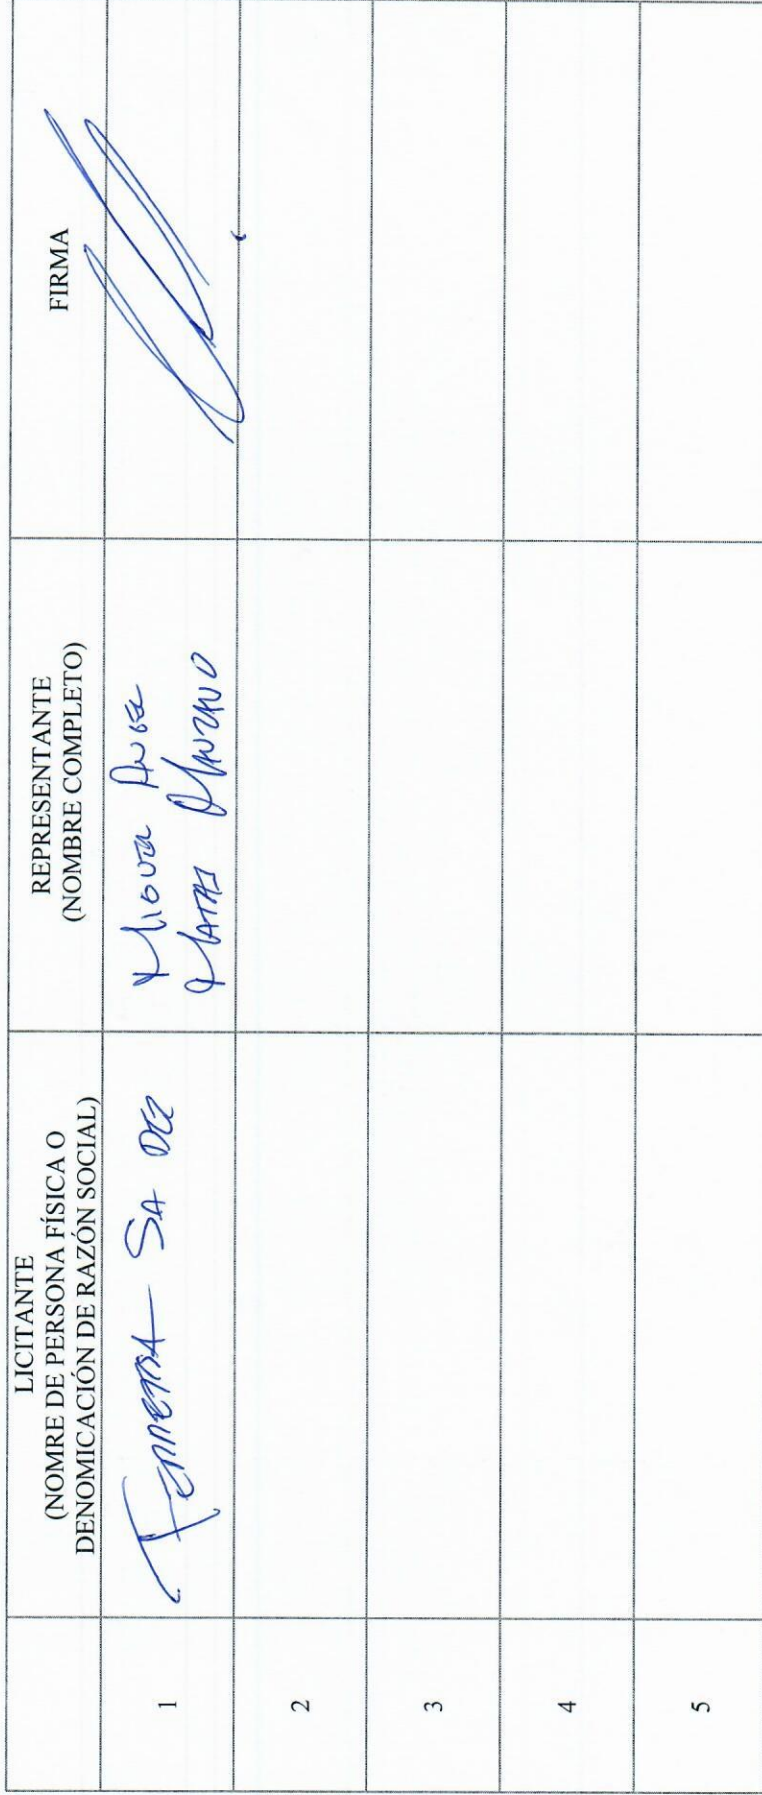 LICITANTE
(NOMRE DE PERSONA FÍSICA O
DENOMICACIÓN DE RAZÓN SOCIAL)
REPRESENTANTE
(NOMBRE COMPLETO)
FIRMA
1
SA DE
Miguel Angel
Matas Manzano
2
3
4
5